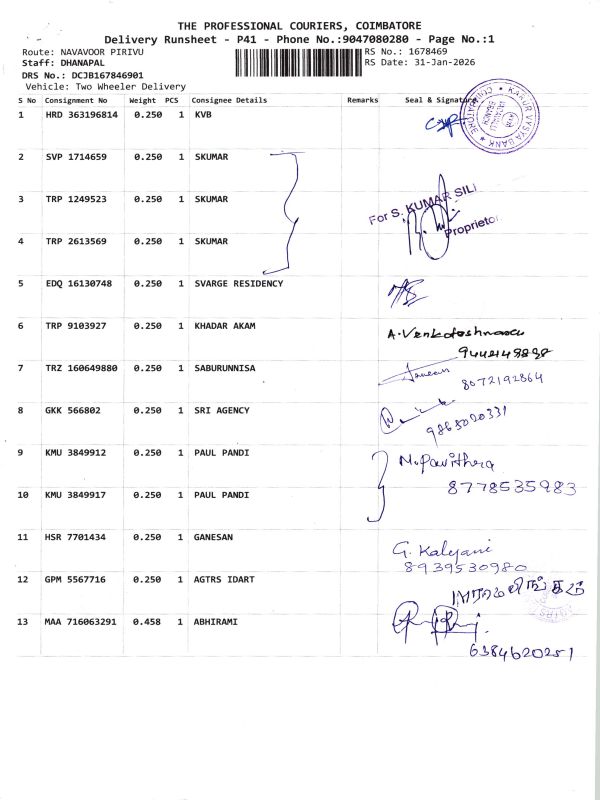 THE PROFESSIONAL COURIERS, COIMBATORE
Delivery Runsheet - P41 - Phone No.:9047080280 - Page No.:1
Route: NAVAVOOR PIRIVU RS No.: 1678469
Staff: DHANAPAL RS Date: 31-Jan-2026
DRS No.: DCJB167846901
Vehicle: Two Wheeler Delivery
S No Consignment No Weight PCS Consignee Details Remarks Seal & Signature
1 HRD 363196814 0.250 1 KVB
KARUR VYSYA BANK
2 SVP 1714659 0.250 1 SKUMAR
3 TRP 1249523 0.250 1 SKUMAR
For S. KUMAR SILI
Proprietor
4 TRP 2613569 0.250 1 SKUMAR
5 EDQ 16130748 0.250 1 SVARGE RESIDENCY
6 TRP 9103927 0.250 1 KHADAR AKAM
7 TRZ 160649880 0.250 1 SABURUNNISA
8072192864
8 GKK 566802 0.250 1 SRI AGENCY
9 KMU 3849912 0.250 1 PAUL PANDI M. Pavithra
8778535983
10 KMU 3849917 0.250 1 PAUL PANDI
11 HSR 7701434 0.250 1 GANESAN G. Kalyani
8939530980
12 GPM 5567716 0.250 1 AGTRS IDART
13 MAA 716063291 0.458 1 ABHIRAMI
6384620251